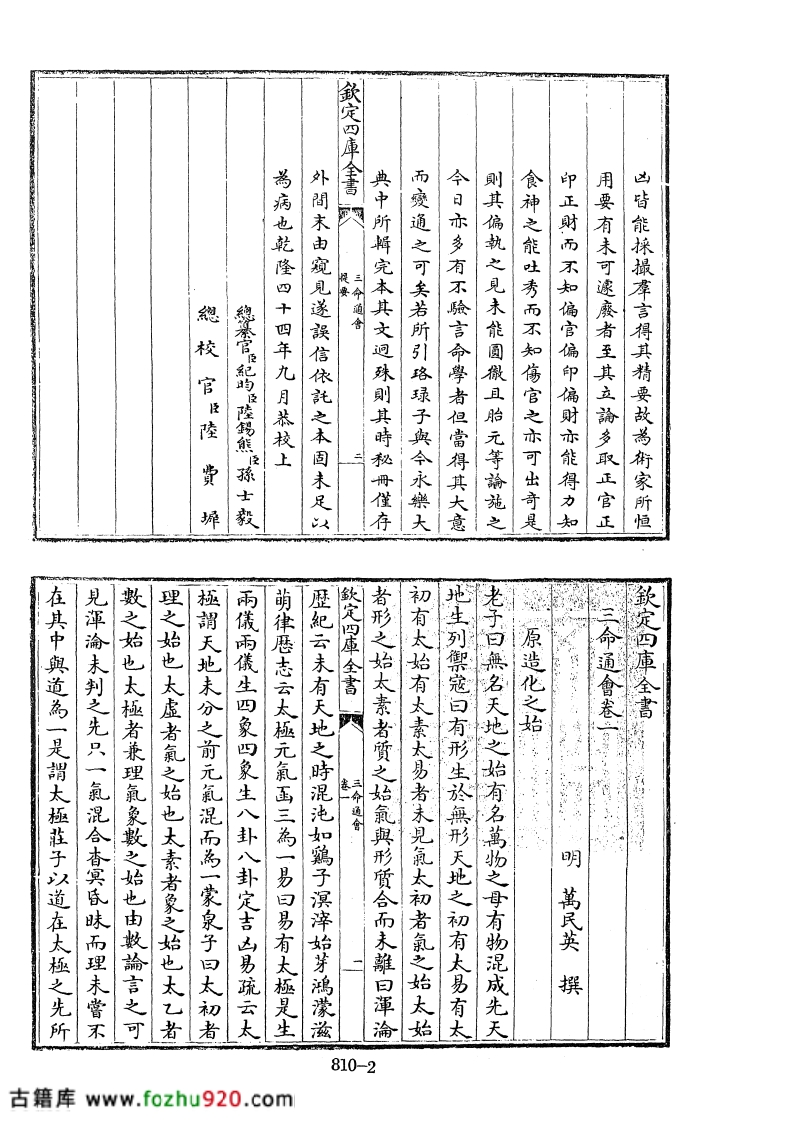 凶皆能採撮羣言得其精要故為術家所恒
用要有未可遽廢者至其立論多取正官正
印正財而不知偏官偏印偏財亦能得力知
食神之能吐秀而不知傷官之亦可出奇是
則其偏執之見未能圓徹且胎元等論施之
今日亦多有不驗言命學者但當得其大意
而變通之可矣若所引珞琭子與今永樂大
典中所輯完本其文迥殊則其時秘冊僅存
欽定四庫全書
三命通會
提要
二
外間末由窺見遂誤信依託之本固未足以
為病也乾隆四十四年九月恭校上
總纂官臣紀昀臣陸錫熊臣孫士毅
總校官臣陸費墀
欽定四庫全書
三命通會卷一
明 萬民英 撰
原造化之始
老子曰無名天地之始有名萬物之母有物混成先天
地生列禦寇曰有形生於無形天地之初有太易有太
初有太始有太素太易者未見氣太初者氣之始太始
者形之始太素者質之始氣與形質合而未離曰渾淪
欽定四庫全書
三命通會
卷一
一
歷紀云未有天地之時混沌如鷄子溟涬始芽鴻濛滋
萌律歷志云太極元氣函三為一易曰易有太極是生
兩儀兩儀生四象四象生八卦八卦定吉凶易疏云太
極謂天地未分之前元氣混而為一蒙泉子曰太初者
理之始也太虛者氣之始也太素者象之始也太乙者
數之始也太極者兼理氣象數之始也由數論言之可
見渾淪未判之先只一氣混合杳冥昏昧而理未嘗不
在其中與道為一是謂太極莊子以道在太極之先所
810-2
古籍库 www.fozhu920.com